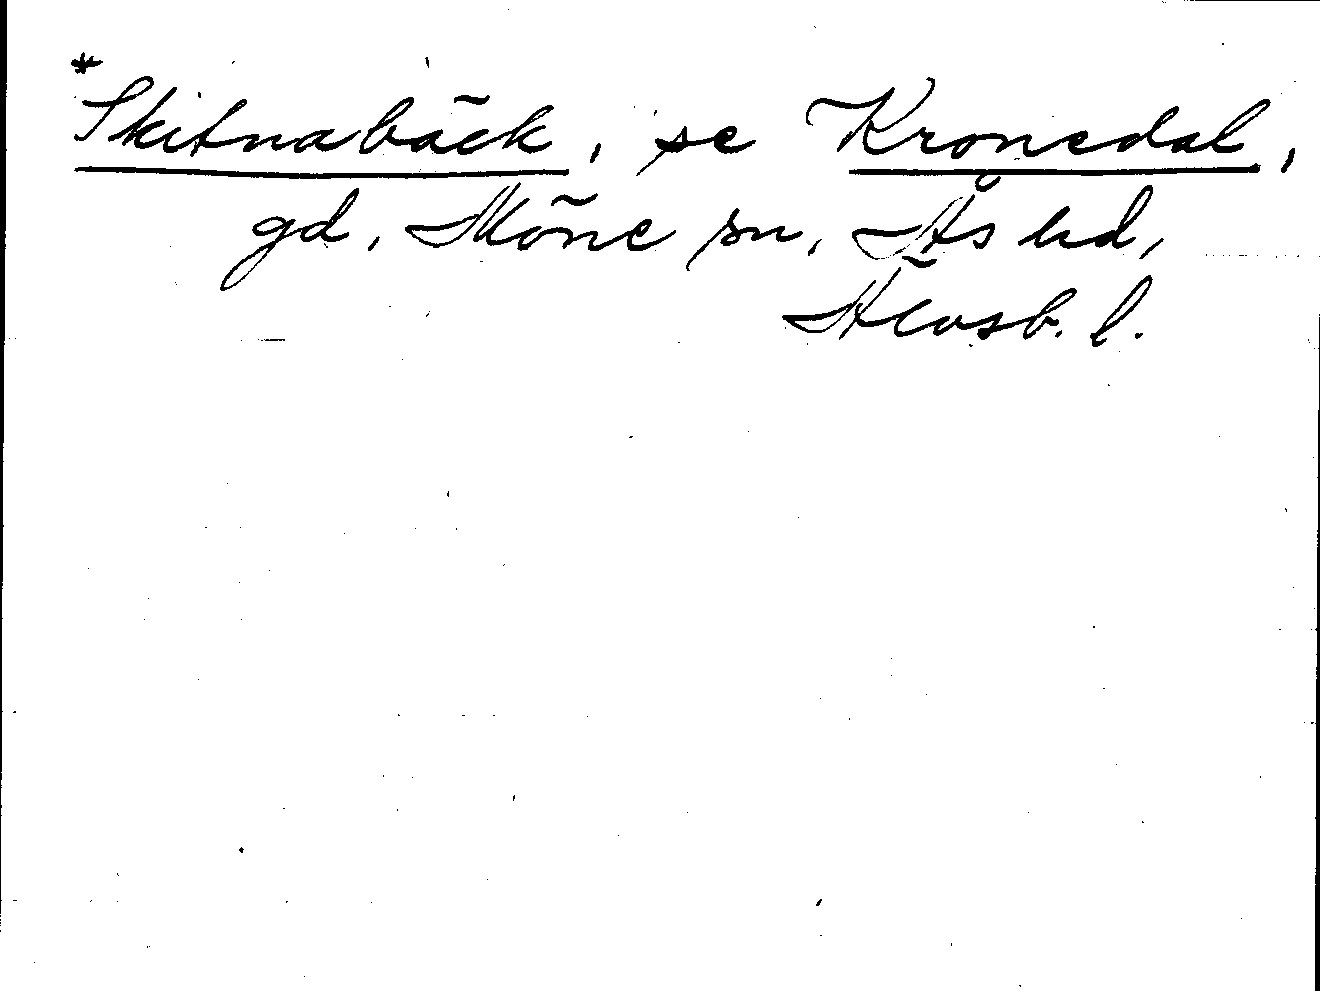 *Skitnabäck, se Kronedal,
gd, Möne sn, Ås hd,
Älvsb. l.